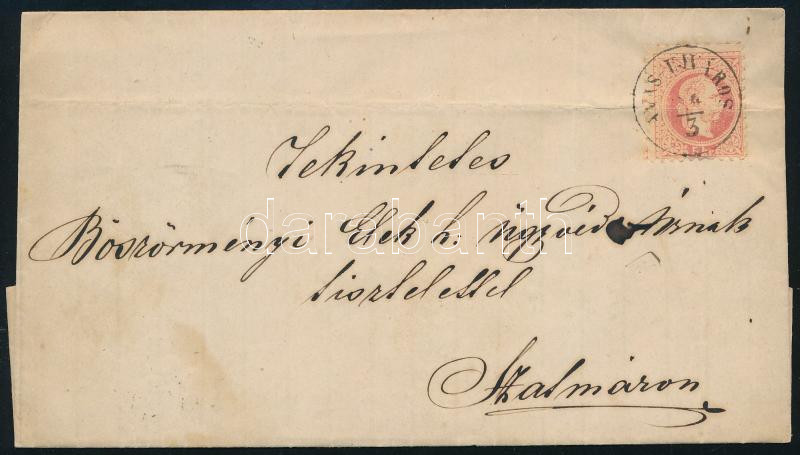 AVAS UJVÁROS
4/3
Tekintetes
Böszörményi Elek h. ügyvéd Úrnak
darabanth
tisztelettel
Szatmáron